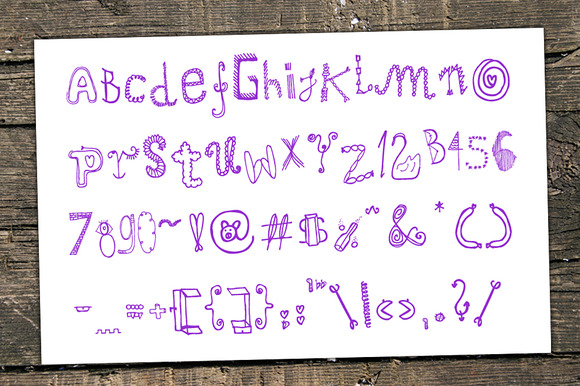 ABcdefGhijklmnO
PrstuwxYz123456
7890~!@#$%^&*()
-_=+[{]}:;'"\|<>,.?/